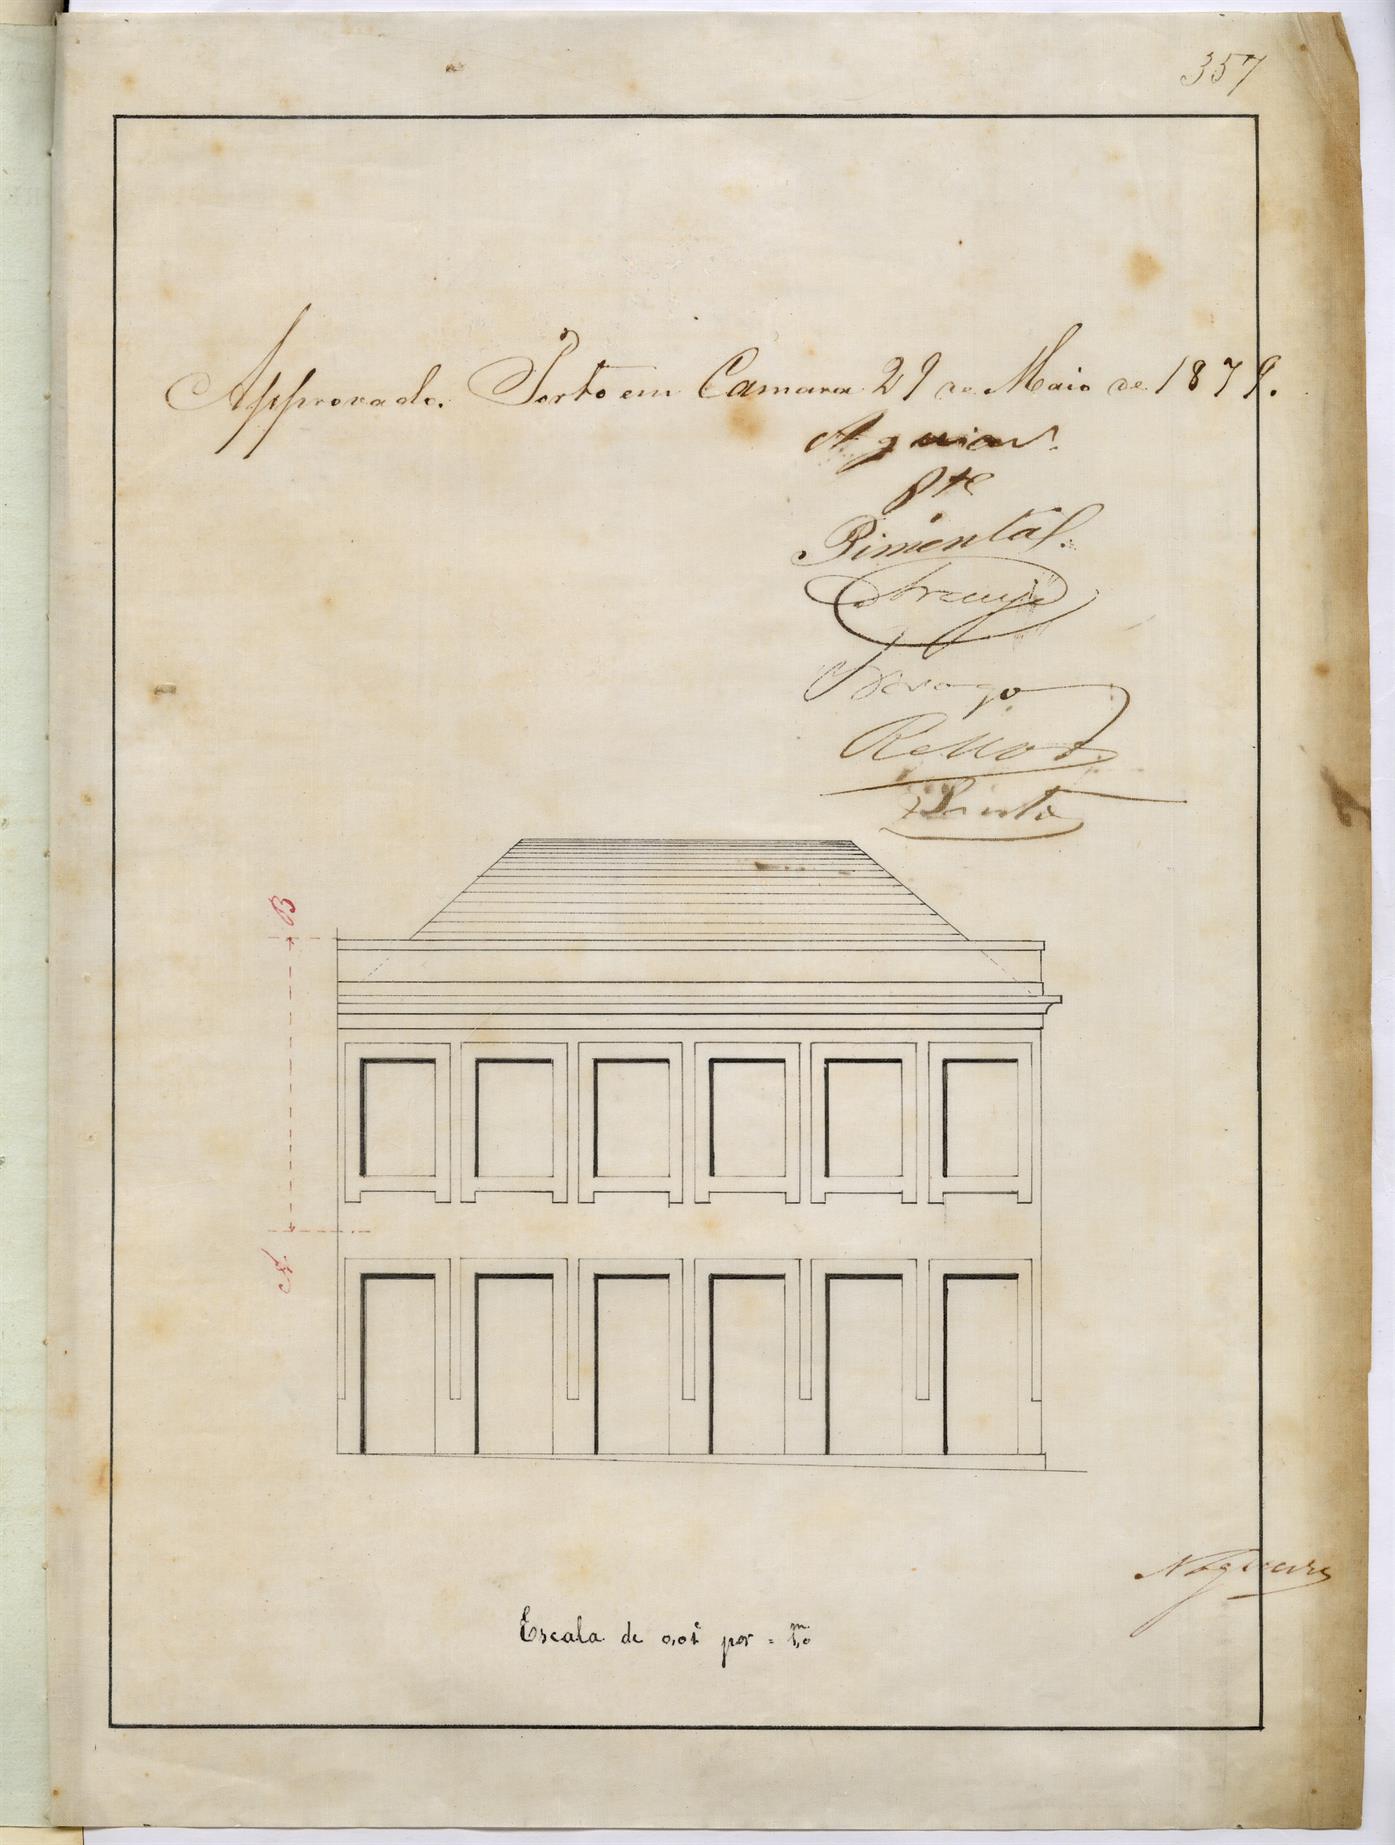 357
Approvado. Porto em Camara 29 de Maio de 1879.
Aguiar
Pte
Pimentel.
Araujo
Pinto
B
A.
Nogueira
Escala de 0,01 por = 1,0